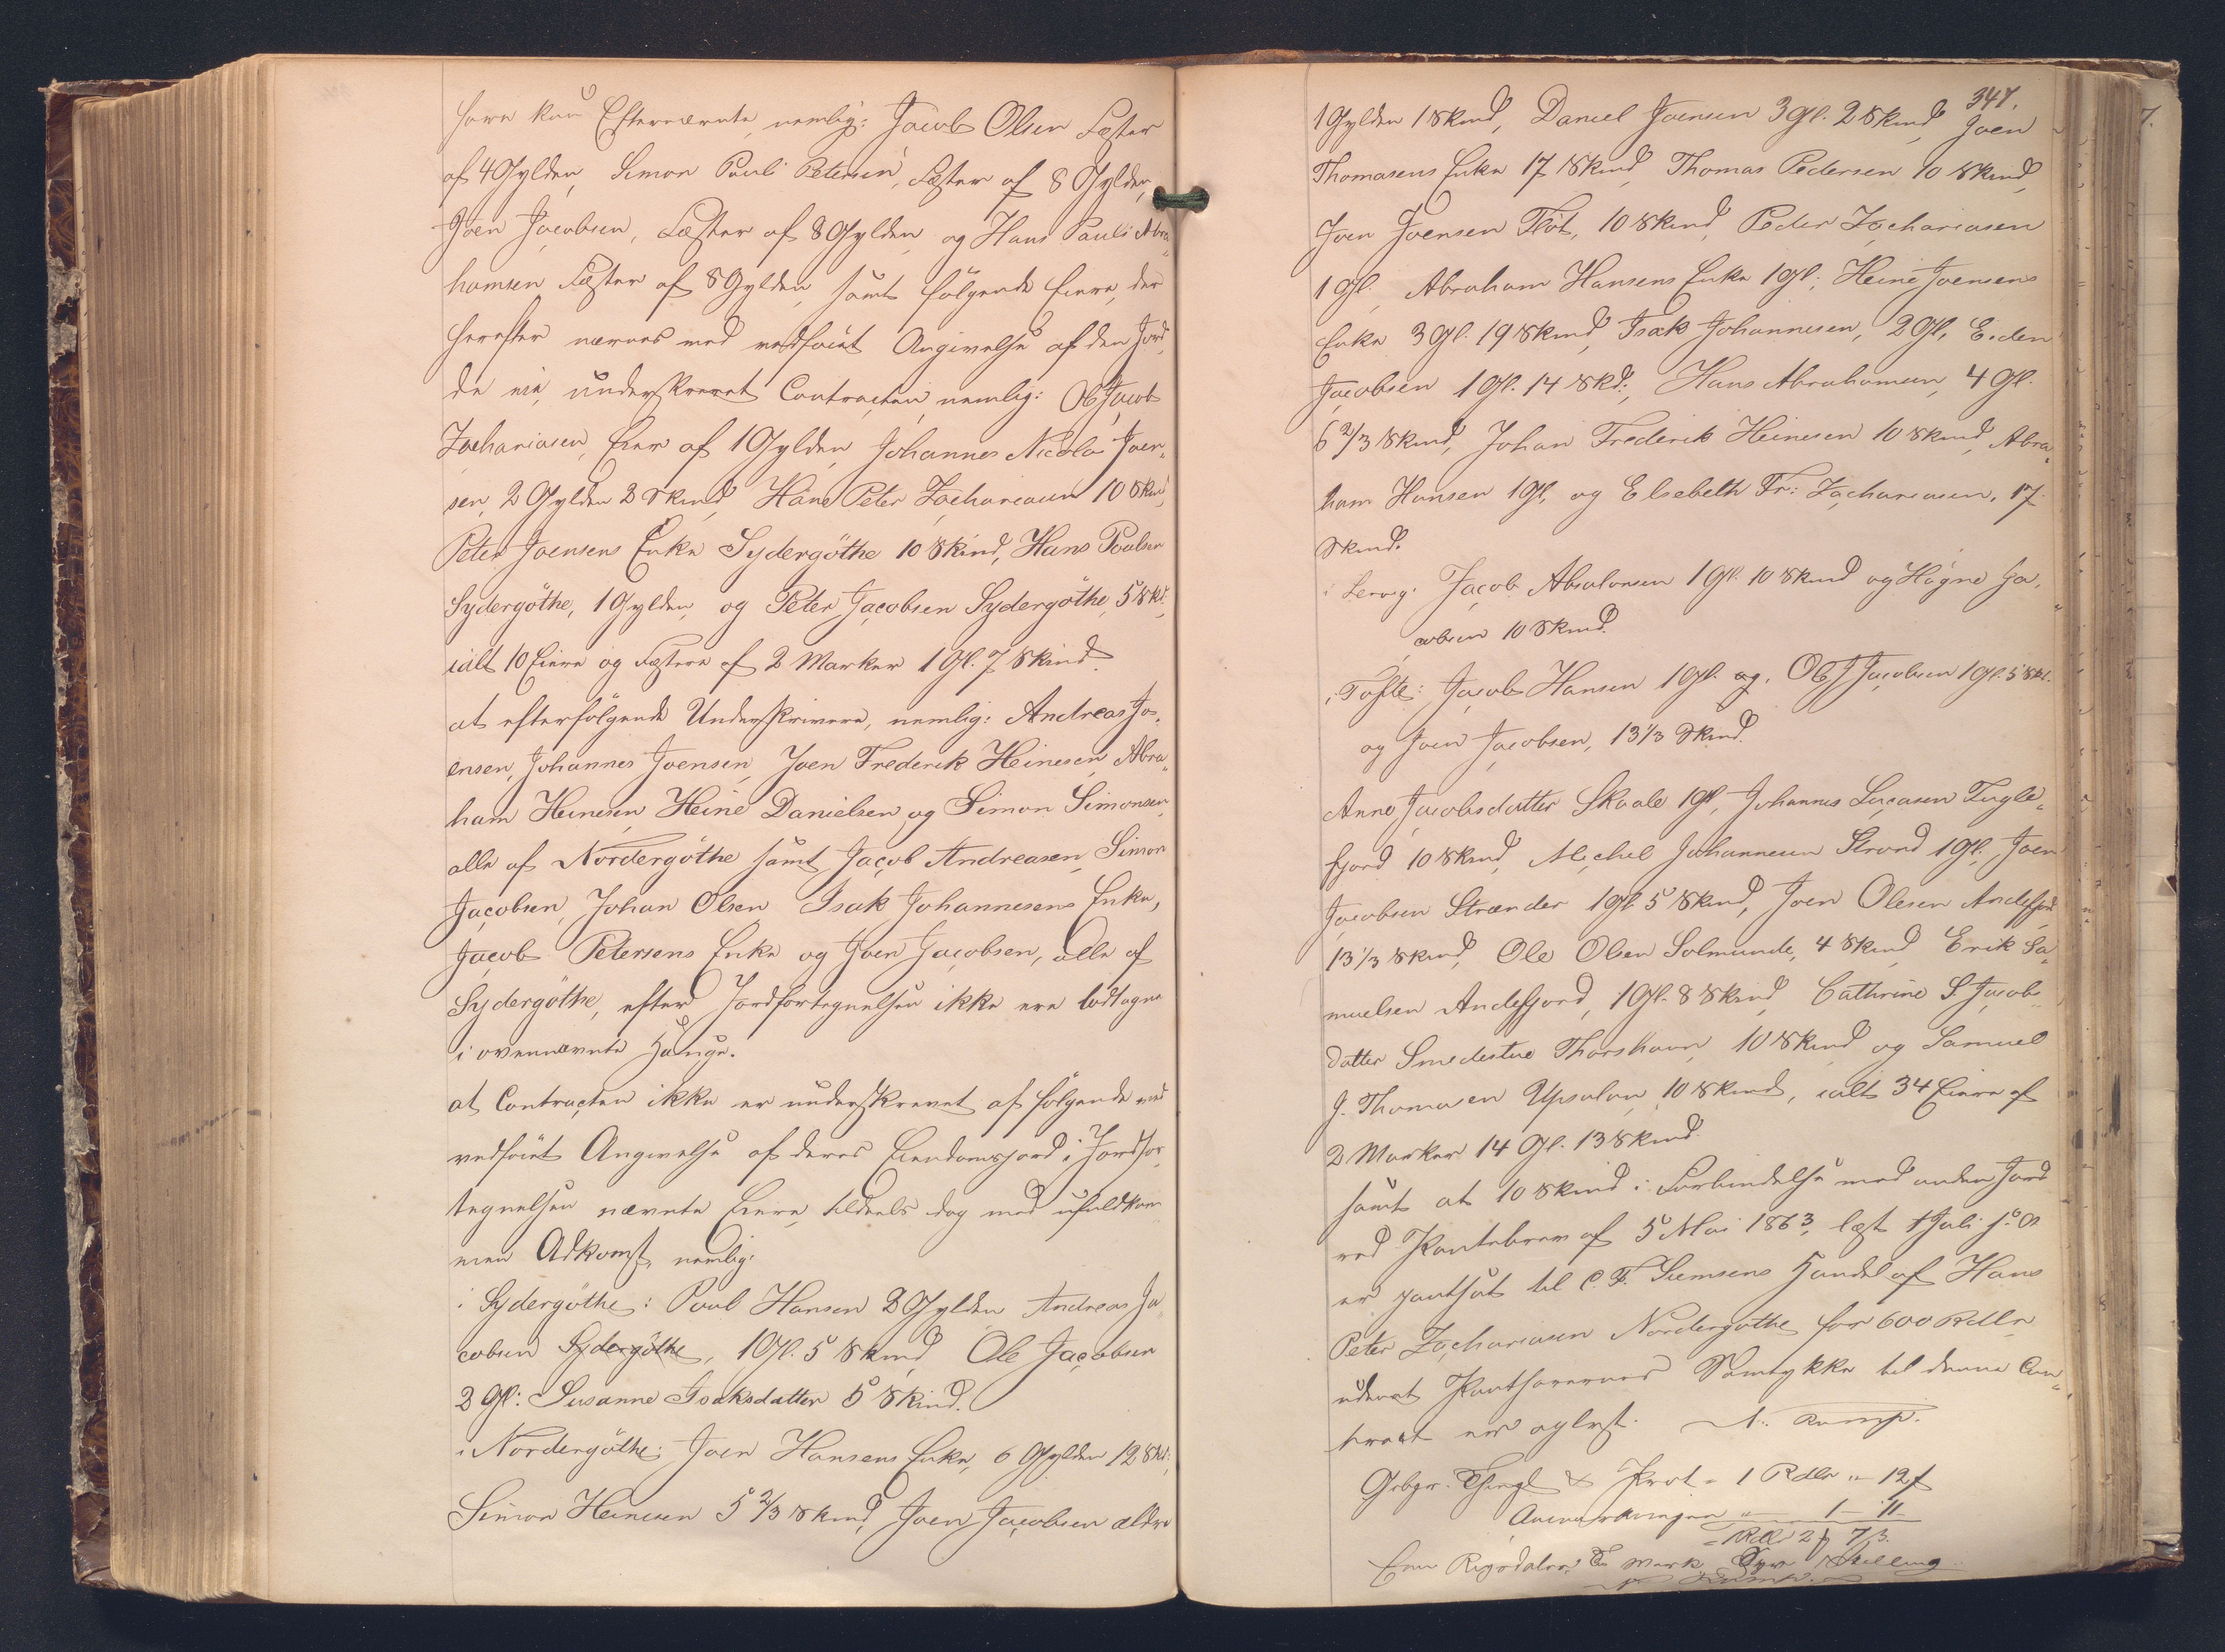 have kun Efternævnte, nemlig: Jacob Olsen Fæster
af 4 Gylden, Simon Pauli Petersen, Fæster af 8 Gylden,
Joen Jacobsen, Fæster af 8 Gylden og Hans Pauli Abra-
hamsen Fæster af 8 Gylden, samt følgende Eiere, der
herefter nævnes med vedføiet Angivelse af den Jord,
de eie, underskrevet Contracten, nemlig: Ole Jacob
Zachariasen, Eier af 1 Gylden Johannes Nicolai Joen-
sen, 2 Gylden 2 Skind Hans Peter Zachariasen 10 Skind,
Peter Joensens Enke Sydergöthe 10 Skind, Hans Poulsen
Sydergöthe, 1 Gylden, og Peter Jacobsen Sydergöthe, 5 Skd.,
ialt 10 Eiere og Fæstere af 2 Marker 1 Gl. 7 Skind.
at efterfølgende Underskrivere, nemlig: Andreas Jo-
ensen, Johannes Joensen, Joen Frederik Heinesen, Abra-
ham Heinesen, Heine Danielsen og Simon Simonsen,
alle af Nordergöthe samt Jacob Andreasen, Simon
Jacobsen, Johan Olsen Isak Johannesens Enke,
Jacob Petersens Enke og Joen Jacobsen, alle af
Sydergöthe, efter Jordfortegnelsen ikke ere lodtagne
i ovennævnte Hauge.
at Contracten ikke er underskrevet af følgende med
vedføiet Angivelse af deres Eiendomsjord i Jordfor-
tegnelsen nævnte Eiere, tildeels dog med ufuldkom-
men Adkomst, nemlig:
i Sydergöthe: Poul Hansen 2 Gylden Andreas Ja-
cobsen Sydergöthe, 1 Gl. 5 Skind, Ole Jacobsen
2 Gl: Susanne Isaksdatter 5 Skind.
i Nordergöthe: Joen Hansens Enke, 6 Gylden 12 Skd:,
Simon Heinesen 5 2/3 Skind, Joen Jacobsen ældre
347.
1 Gylden 1 Skind, Daniel Joensen 3 Gl. 2 Skind Joen
Thomasens Enke 17 Skind, Thomas Pedersen 10 Skind,
Joen Joensen Flöt, 10 Skind, Peder Zachariasen
1 Gl. Abraham Hansens Enke 1 Gl., Heine Joensens
Enke 3 Gl. 19 Skind, Isak Johannesen, 2 Gl, Eiden
Jacobsen 1 Gl. 14 Skd:, Hans Abrahamsen, 4 Gl.
6 2/3 Skind, Johan Frederik Heinesen 10 Skind, Abra-
ham Hansen 1 Gl, og Elsebeth Fr: Zachariasen, 17
Skind.
i Lervig: Jacob Absalonsen 1 Gl. 10 Skind og Högne Ja-
cobsen 10 Skind.
i Tofte: Jacob Hansen 1 Gl. og Ole J Jacobsen 1 Gl. 5 Skd.
og Joen Jacobsen, 13 1/3 Skind.
Anne Jacobsdatter Skaale 1 Gl, Johannes Lucasen Fugle-
fjord 10 Skind, Michel Johannesen Strond 1 Gl, Joen
Jacobsen Strænder 1 Gl 5 Skind, Joen Olesen Andefjord
13 1/3 Skind, Ole Olsen Solmunde, 4 Skind Erik Sa-
muelsen Andefjord, 1 Gl. 8 Skind, Cathrine S. Jacobs-
datter Smedestue Thorshavn, 10 Skind og Samuel
J. Thomasen 10 Skind, ialt 34 Eiere af
2 Marker 14 Gl. 13 Skind.
samt at 10 Skind i Forbindelse med anden Jord
ved Pantebrev af 5 Mai 1863, læst 1 Juli s. A
er pantsat til C. F. Siemsens Handel af Hans
Peter Zachariasen Nordergöthe for 600 Rdlr
uden at Panthavernes Samtykke til denne Con-
tract er oplyst. N. Rump.
Gebyr. Thingl & Prot = 1 Rdlr " - 12 ß
Anmærkningen " 1 - 11 -
= Rdlr 2 ß 7 ß.
Een Rigsdaler, To Mark, Syv Skilling
N Rump.